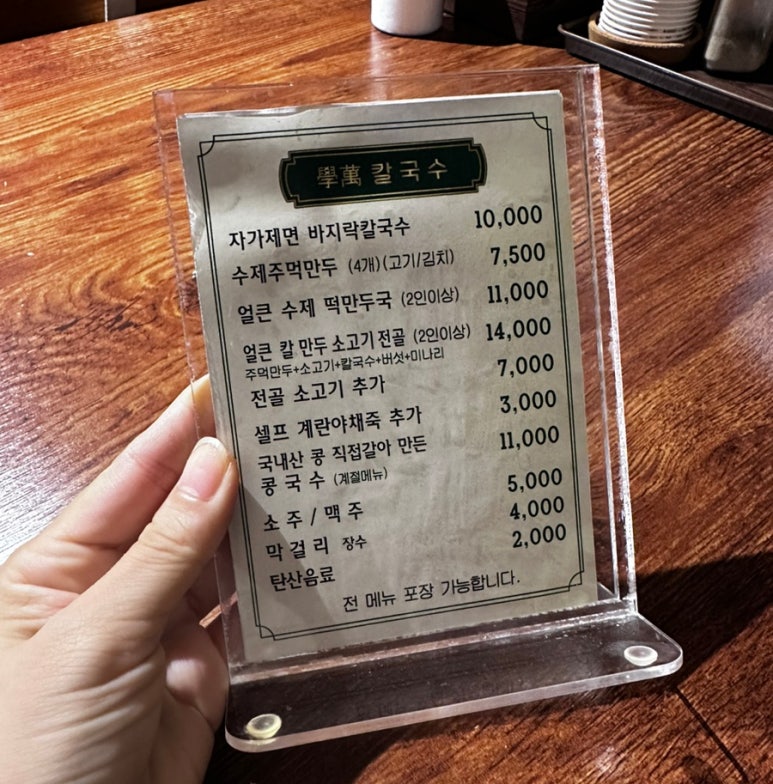 學萬 칼국수
자가제면 바지락칼국수 10,000
수제주먹만두 (4개)(고기/김치) 7,500
얼큰 수제 떡만두국 (2인이상) 11,000
얼큰 칼 만두 소고기 전골 (2인이상) 14,000
주먹만두+소고기+칼국수+버섯+미나리
전골 소고기 추가 7,000
셀프 계란야채죽 추가 3,000
국내산 콩 직접갈아 만든
콩국수 (계절메뉴) 11,000
소주/맥주 5,000
막걸리 장수 4,000
탄산음료 2,000
전 메뉴 포장 가능합니다.